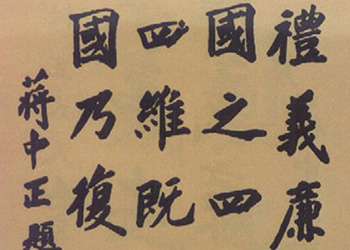 禮義廉
國之四
四維既
國乃復
蔣中正題